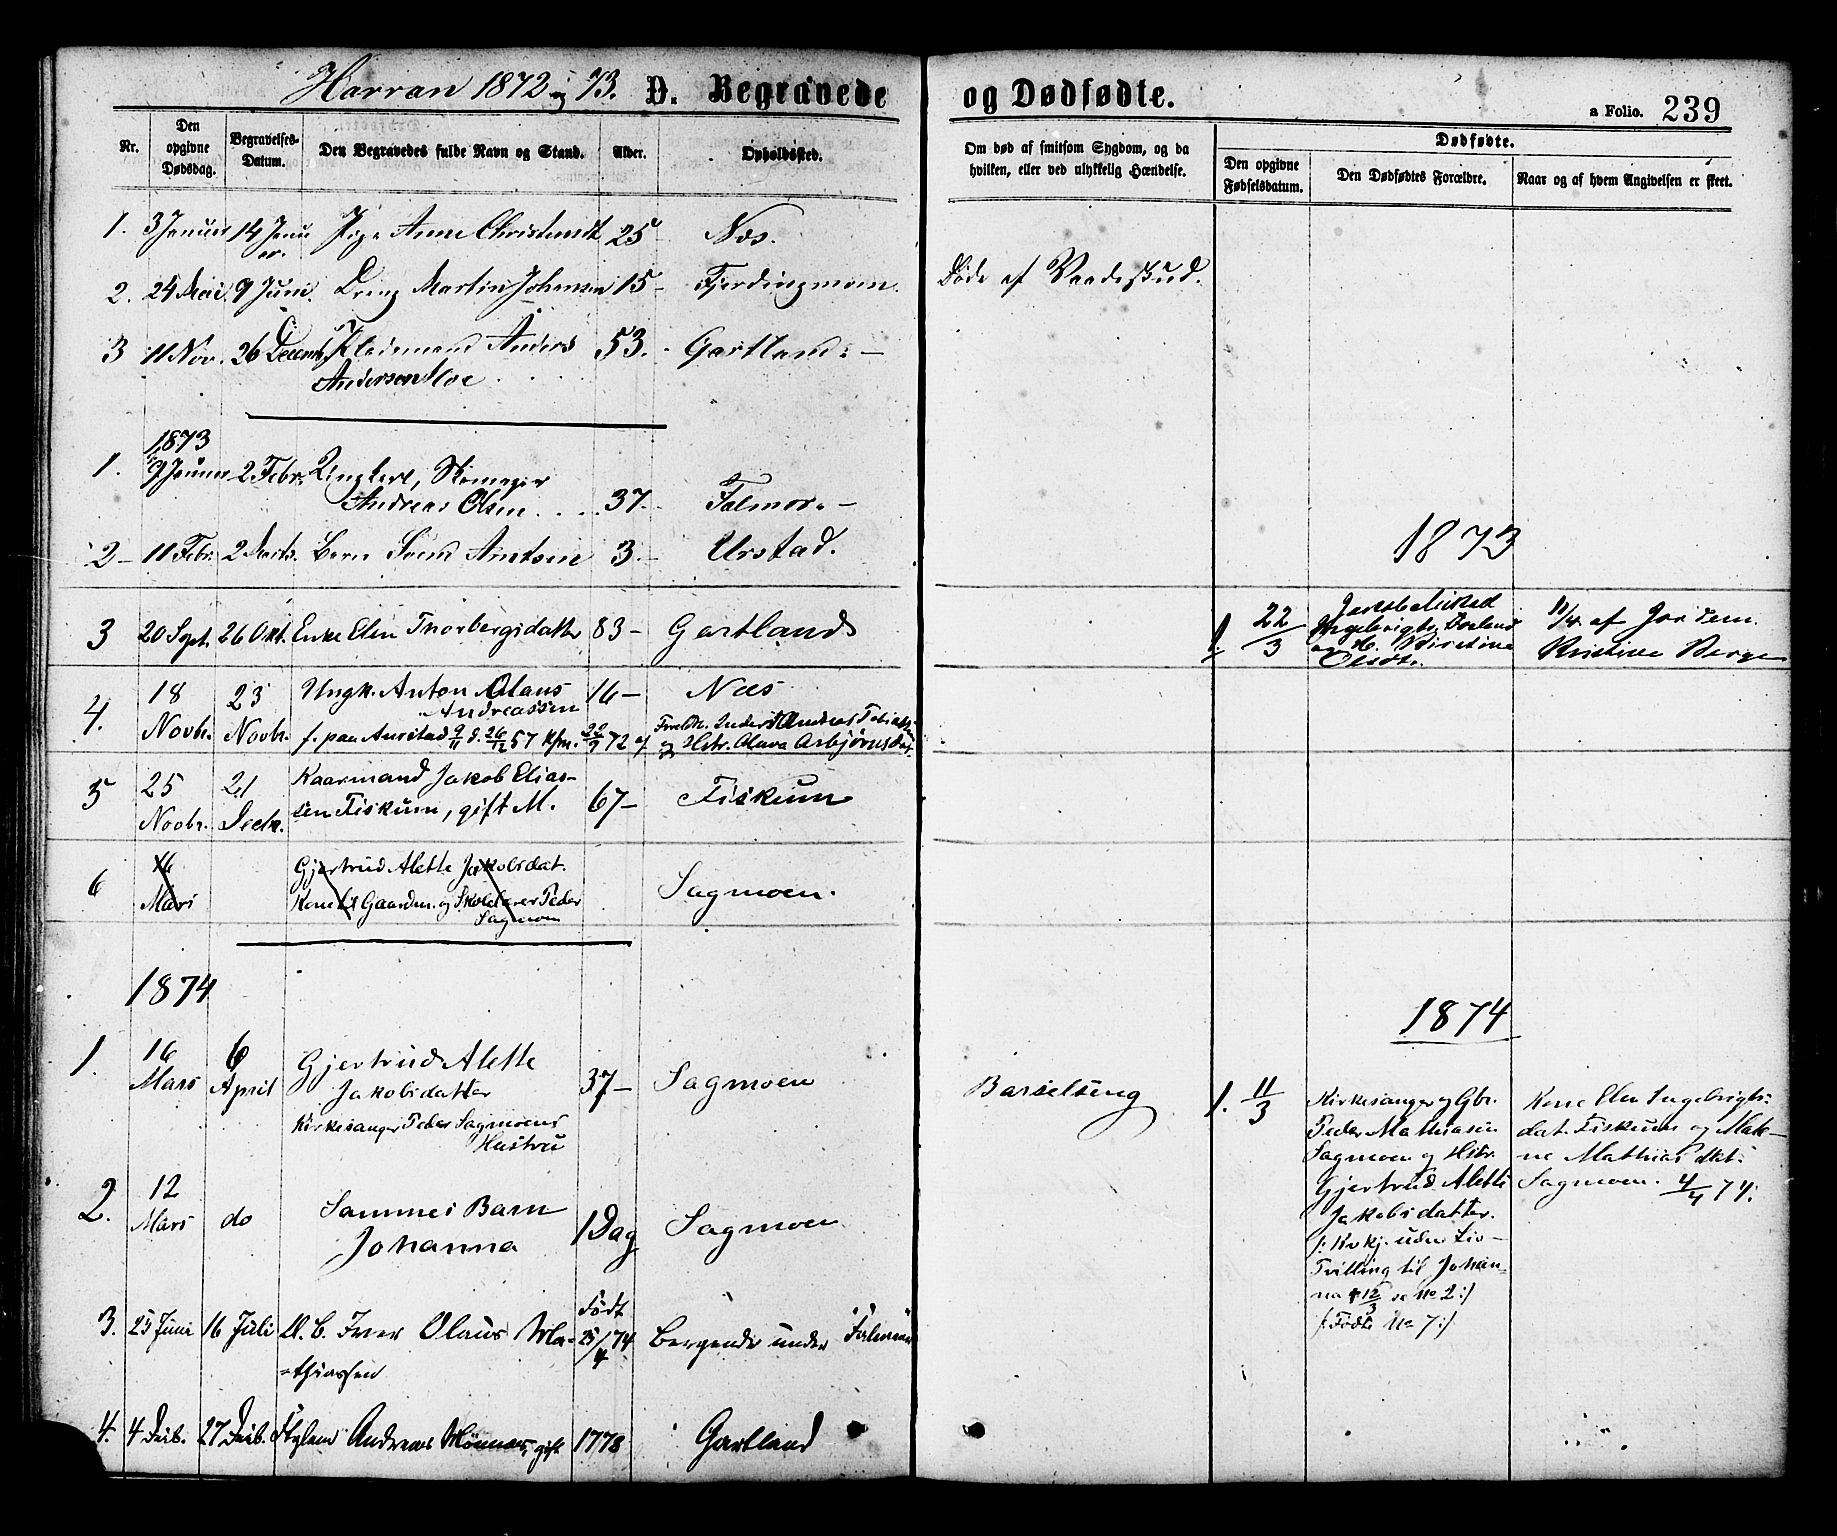 Harran 1872 og 73. D. Begravede og Dødfødte. a Folio. 239
Nr. Den opgivne Dødsdag. Begravelses-Datum. Den Begravedes fulde Navn og Stand. Alder. Opholdssted. Om død af smitsom Sygdom, og da hvilken, eller ved ulykkelig Hændelse. Dødfødte. Den opgivne Fødselsdatum. Den Dødfødtes Forældre. Naar og af hvem Angivelsen er skeet.
1. 3 Januar 14 Janu
ar. Pige Anne Christensdt 25 Næs.
2. 24 Mai 9 Juni. Dreng Martin Johnsen 15 - Fjerdingmoen. Døde af Vaadeskud.
3 11 Nov. 26 Decemb. Anders 53. - Gartland -
Andersen Moe
1873
1. 9 Januar 2 Febr. Ungkarl, Skomager
Andreas Olsen 37 - Falmor -
2 - 11 Febr. 2 Marts. Barn Svend Arntsen 3. - Urstad.
1873
3 20 Sept. 26 Okt. Enke Elen Thorbergsdatter 83 - Gartland
1. 22/3 Jakob
og H. Kirstine
Olsdt. af Jordem.
Kristine Berge
4. 18
Novbr. 23
Novbr. Ungk. Anton Olaus
Andreassen 16 - Næs
f. paa Aunstad 9/11 d. 26/12 57 Kfm. 22/9 72 af Forældr. Inderst Andreas Tobiass.
og Hstr. Olava Asbjørnsdat.
5 25
Novbr. 21
Decbr. Kaarmand Jakob Elias-
sen Fiskum, gift M. 67 - Fiskum
6 16
Mars Gjertrud Alette Jakobsdat.
Kone til Gaardm. og Skolelærer Peder
Sagmoen Sagmoen.
1874
1874
1. 16
Mars 6
April Gjertrud Alette
Jakobsdatter
Kirkesanger Peder Sagmoens
Hustru 37 - Sagmoen Barselseng
1. 11/3 Kirkesanger og Gbr.
Peder Mathiasen
Sagmoen og Hstr.
Gjertrud Alette
Jakobsdatter.
Tvilling til Johan-
na † 12/3 se No 2 :/
/: Fødte No 7 :/
Kone Elen Ingebrigts-
dat. Fiskum og Male-
ne Mathiasdat.
Sagmoen. 4/4 74.
2. 12
Mars do Sammes Barn
Johanna 1 Dag Sagmoen
3. 25 Juni 16 Juli U. B. Iver Olaus Ma-
thiassen Født
25/4 74 Bergende under Falmoen
4. 4 Decb. 27 Decb. Andreas gift 1778 Gartland